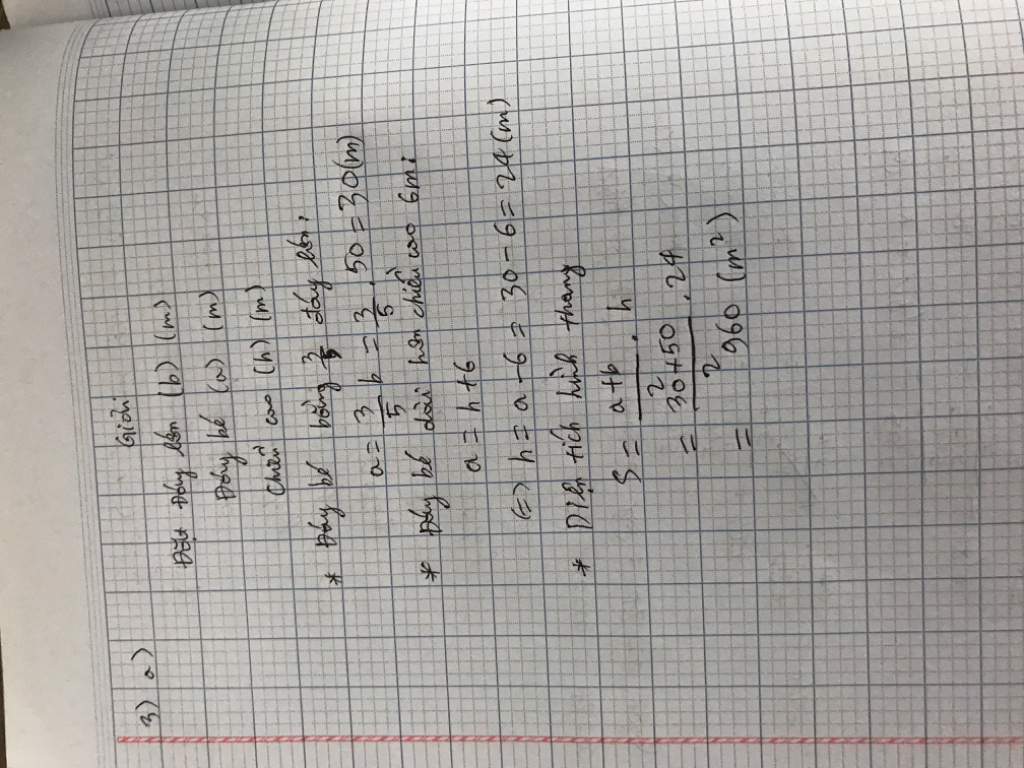 3) a)
Giải
Đặt Đáy lớn (b) (m)
Đáy bé (a) (m)
Chiều cao (h) (m)
* Đáy bé bằng 3/5 đáy lớn:
a = 3/5 b = 3/5 . 50 = 30 (m)
* Đáy bé dài hơn chiều cao 6m:
a = h + 6
(=) h = a - 6 = 30 - 6 = 24 (m)
* Diện tích hình thang
S = a+b/2 . h
= 30+50/2 . 24
= 960 (m²)